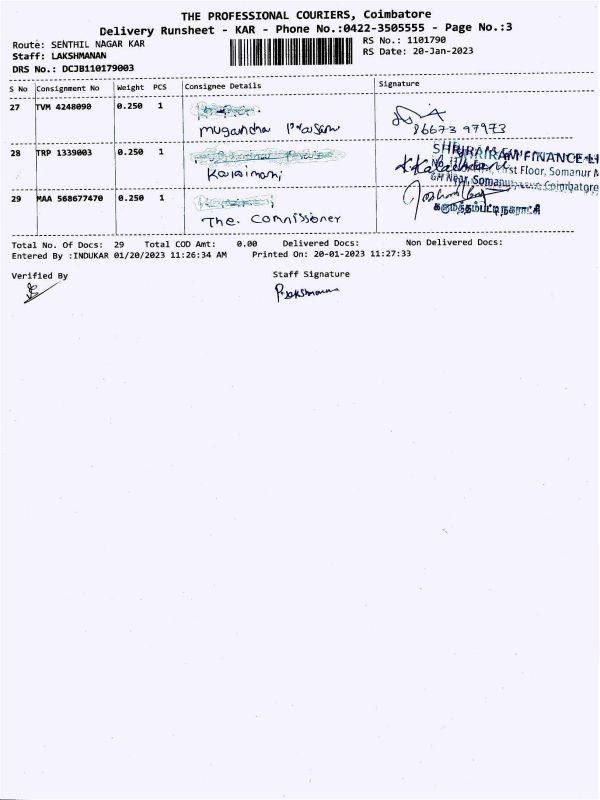 THE PROFESSIONAL COURIERS, Coimbatore
Delivery Runsheet - KAR - Phone No.:0422-3505555 - Page No.:3
Route: SENTHIL NAGAR KAR
RS No.: 1101790
Staff: LAKSHMANAN
RS Date: 20-Jan-2023
DRS No.: DCJB110179003
S No Consignment No Weight PCS Consignee Details Signature
27 TVM 4248090 0.250 1
86673 97973
28 TRP 1339003 0.250 1
SHRIRAM FINANCE LI
First Floor, Somanur M
Kalaimani
GH Near, Somanur
Coimbatore
29 MAA 568677470 0.250 1
கருமத்தம்பட்டி நகராட்சி
The. Commissioner
Total No. Of Docs: 29 Total COD Amt: 0.00 Delivered Docs: Non Delivered Docs:
Entered By :INDUKAR 01/20/2023 11:26:34 AM Printed On: 20-01-2023 11:27:33
Verified By Staff Signature